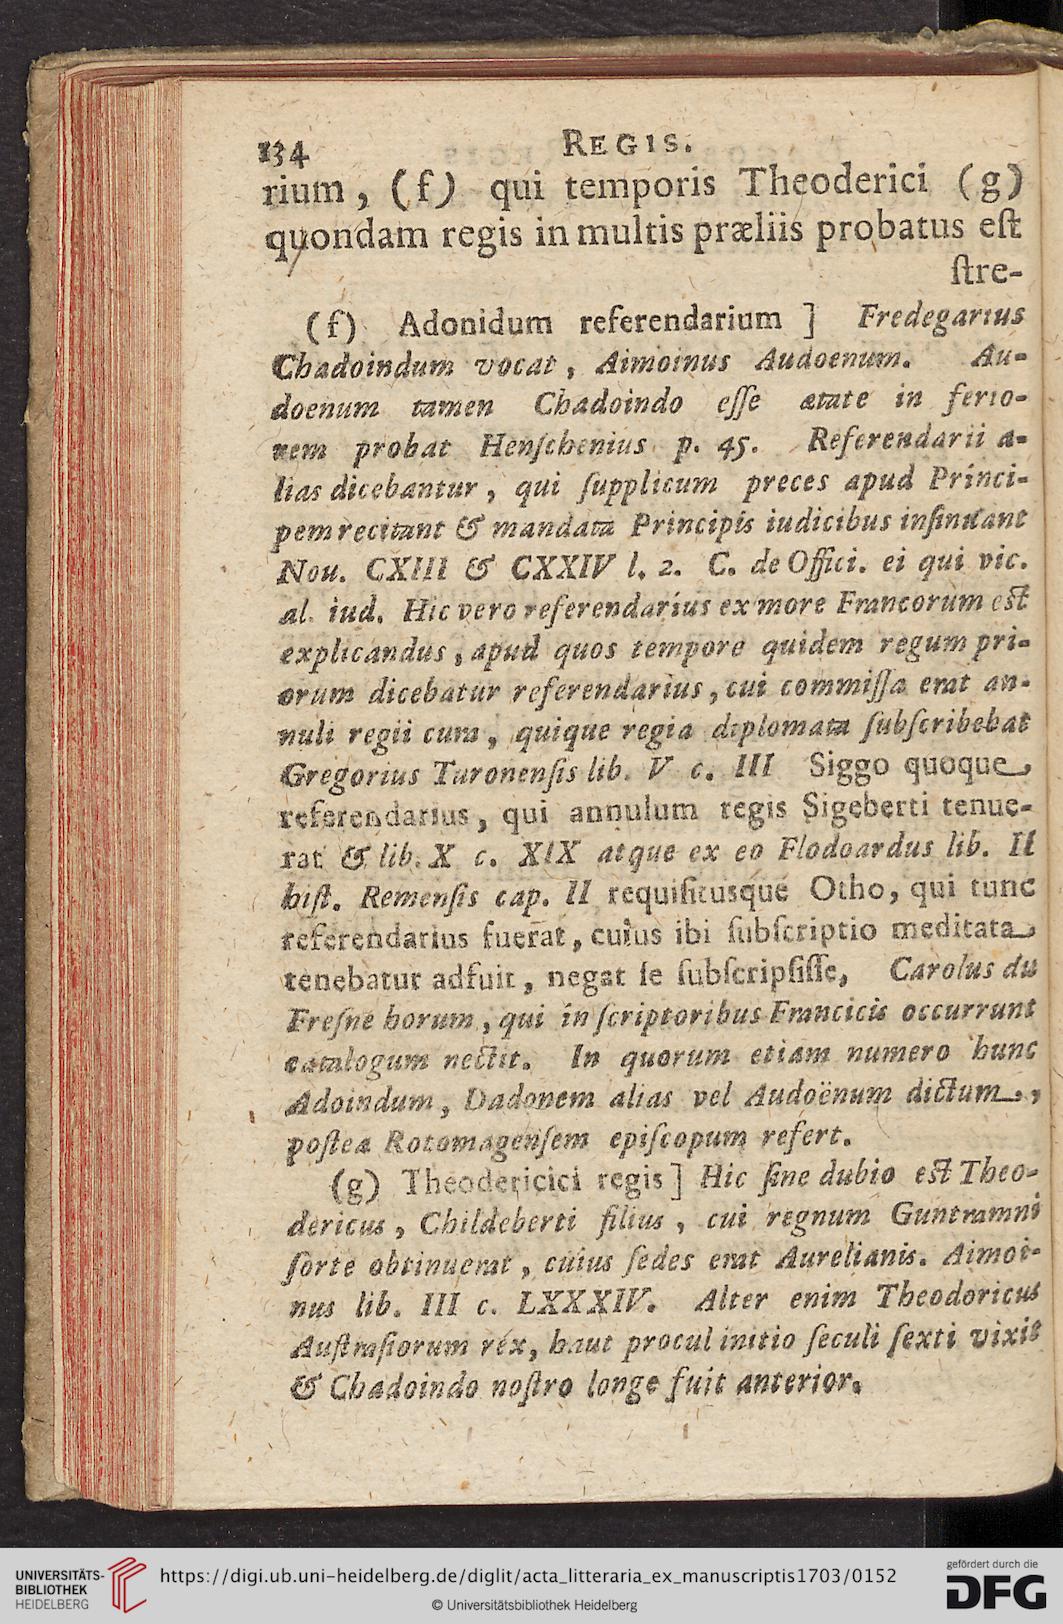 134 REGIS.
rium, (f) qui temporis Theoderici (g)
quondam regis in multis præliis probatus eſt
ſtre-
(f) Adonidum referendarium ] Fredegarius
Chadoindum vocat, Aimoinus Audoenum. Au-
doenum tamen Chadoindo eſſe ætate in ferio-
nem probat Henſchenius p. 45. Referendarii a-
lias dicebantur, qui ſupplicum preces apud Princi-
pem recitant & mandata Principis iudicibus inſinuant
Nou. CXIII & CXXIV l. 2. C. de Offici. ei qui vic.
al. iud. Hic vero referendarius ex more Francorum eſt
explicandus, apud quos tempore quidem regum pri-
orum dicebatur referendarius, cui commiſſa erat an-
nuli regii cura, quique regia diplomata ſubſcribebat
Gregorius Turonenſis lib. V c. III Siggo quoque
referendarius, qui annulum regis Sigeberti tenue-
rat & lib. X c. XIX atque ex eo Flodoardus lib. II
hiſt. Remenſis cap. II requiſitusque Otho, qui tunc
referendarius fuerat, cuius ibi ſubſcriptio meditata
tenebatur adfuit, negat ſe ſubſcripſiſſe, Carolus du
Freſne horum, qui in ſcriptoribus Francicis occurrunt
catalogum nectit. In quorum etiam numero hunc
Adoindum, Dadonem alias vel Audoënum dictum,
poſtea Rotomagenſem epiſcopum refert.
(g) Theodericici regis ] Hic ſine dubio eſt Theo-
dericus, Childeberti filius, cui regnum Guntramni
ſorte obtinuerat, cuius ſedes erat Aurelianis. Aimoi-
nus lib. III c. LXXXIV. Alter enim Theodoricus
Auſtraſiorum rex, haut procul initio ſeculi ſexti vixit
& Chadoindo noſtro longe fuit anterior.
UNIVERSITÄTS-
BIBLIOTHEK
HEIDELBERG
https://digi.ub.uni-heidelberg.de/diglit/acta_litteraria_ex_manuscriptis1703/0152
© Universitätsbibliothek Heidelberg
gefördert durch die
DFG